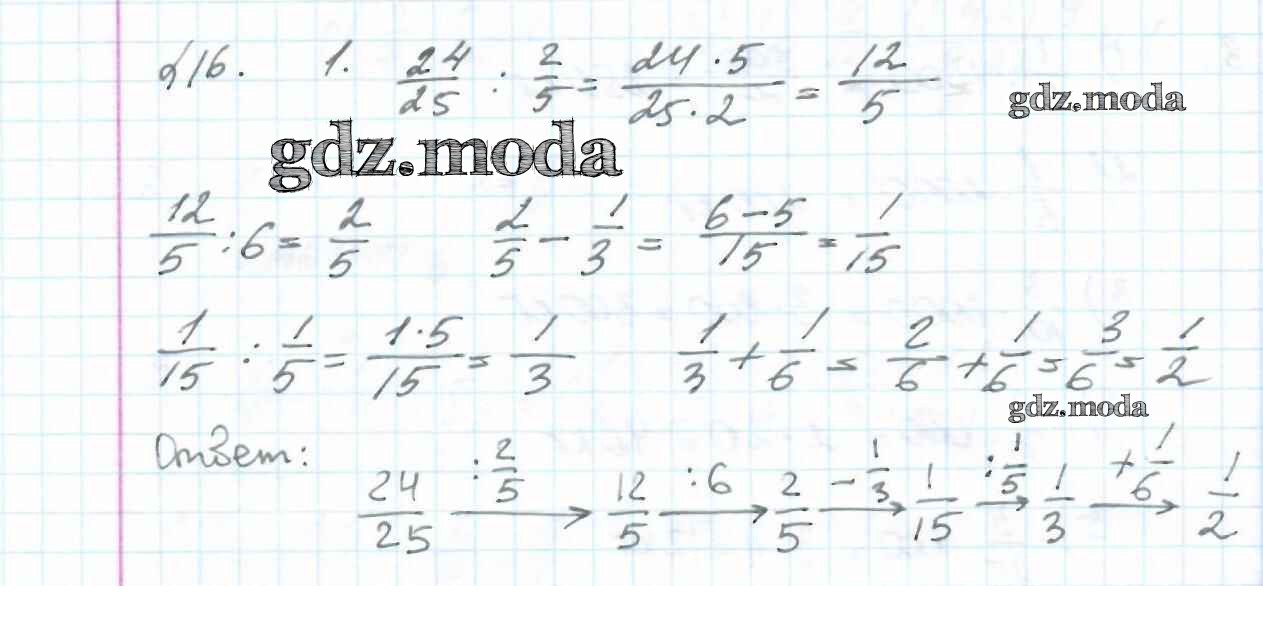 416. 1. 24/25 : 2/5 = 24·5/25·2 = 12/5
gdz.moda
gdz.moda
12/5 : 6 = 2/5 2/5 − 1/3 = 6−5/15 = 1/15
1/15 : 1/5 = 1·5/15 = 1/3 1/3 + 1/6 = 2/6 + 1/6 = 3/6 = 1/2
gdz.moda
Ответ: 24/25 :2/5→ 12/5 :6→ 2/5 −1/3→ 1/15 :1/5→ 1/3 +1/6→ 1/2